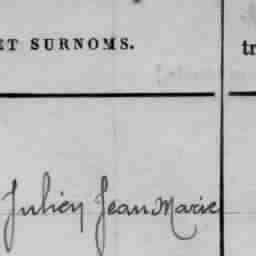 ET SURNOMS.
tr
Julien Jean Marie